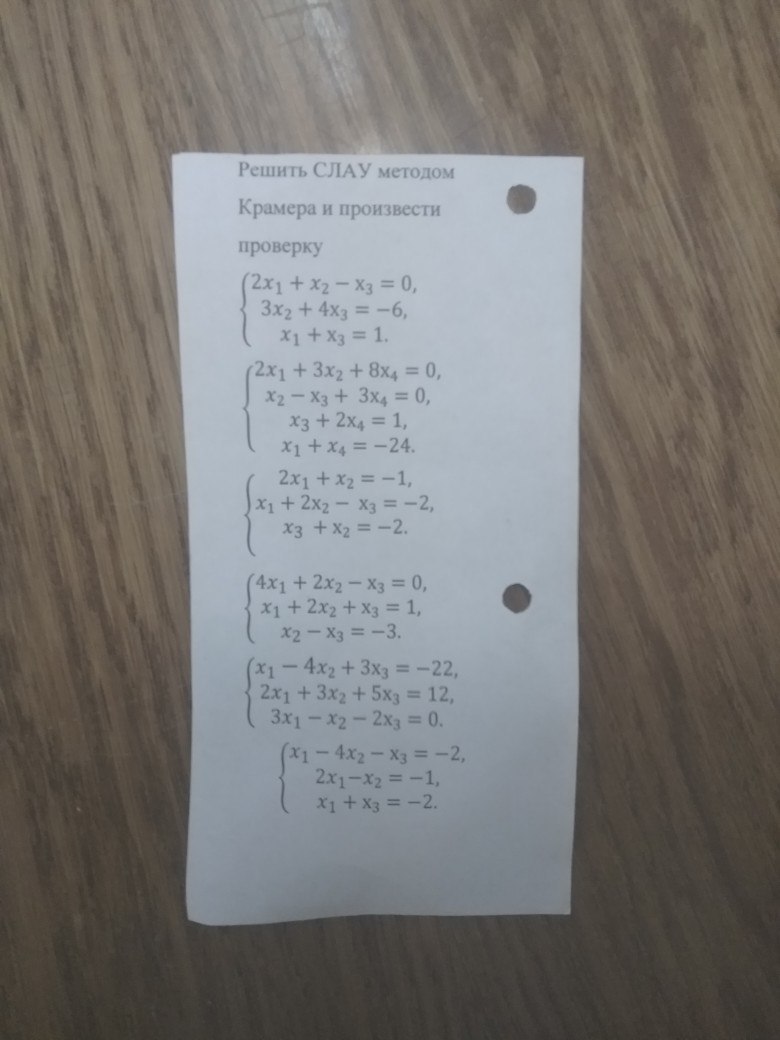 Решить СЛАУ методом
Крамера и произвести
проверку
2x₁ + x₂ − x₃ = 0,
3x₂ + 4x₃ = −6,
x₁ + x₃ = 1.
2x₁ + 3x₂ + 8x₄ = 0,
x₂ − x₃ + 3x₄ = 0,
x₃ + 2x₄ = 1,
x₁ + x₄ = −24.
2x₁ + x₂ = −1,
x₁ + 2x₂ − x₃ = −2,
x₃ + x₂ = −2.
4x₁ + 2x₂ − x₃ = 0,
x₁ + 2x₂ + x₃ = 1,
x₂ − x₃ = −3.
x₁ − 4x₂ + 3x₃ = −22,
2x₁ + 3x₂ + 5x₃ = 12,
3x₁ − x₂ − 2x₃ = 0.
x₁ − 4x₂ − x₃ = −2,
2x₁−x₂ = −1,
x₁ + x₃ = −2.